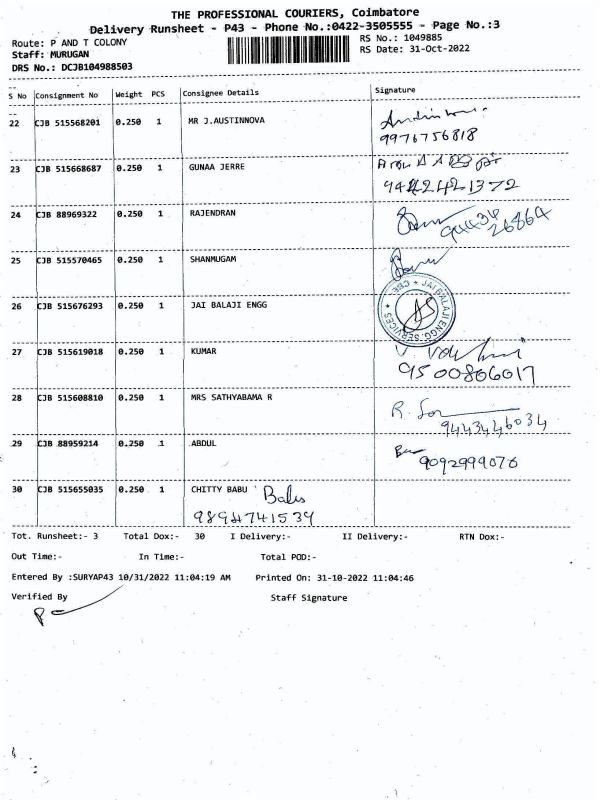 THE PROFESSIONAL COURIERS, Coimbatore
Delivery Runsheet - P43 - Phone No.:0422-3505555 - Page No.:3
Route: P AND T COLONY RS No.: 1049885
Staff: MURUGAN RS Date: 31-Oct-2022
DRS No.: DCJB104988503
S No Consignment No Weight PCS Consignee Details Signature
22 CJB 515568201 0.250 1 MR J.AUSTINNOVA
9976756818
23 CJB 515668687 0.250 1 GUNAA JERRE
24 CJB 88969322 0.250 1 RAJENDRAN
94434 26864
25 CJB 515570465 0.250 1 SHANMUGAM
26 CJB 515676293 0.250 1 JAI BALAJI ENGG
JAI BALAJI ENGG. SERVICES * CBE *
27 CJB 515619018 0.250 1 KUMAR
9500806017
28 CJB 515608810 0.250 1 MRS SATHYABAMA R
9443446034
29 CJB 88959214 0.250 1 ABDUL
9092999076
30 CJB 515655035 0.250 1 CHITTY BABU Babu
9894741539
Tot. Runsheet:- 3 Total Dox:- 30 I Delivery:- II Delivery:- RTN Dox:-
Out Time:- In Time:- Total POD:-
Entered By :SURYAP43 10/31/2022 11:04:19 AM Printed On: 31-10-2022 11:04:46
Verified By Staff Signature